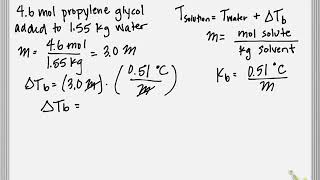 4.6 mol propylene glycol
added to 1.55 kg water
m = 4.6 mol / 1.55 kg = 3.0 m
ΔTb = (3.0 m) · (0.51 °C / m)
ΔTb =
Tsolution = Twater + ΔTb
m = mol solute / kg solvent
Kb = 0.51 °C / m